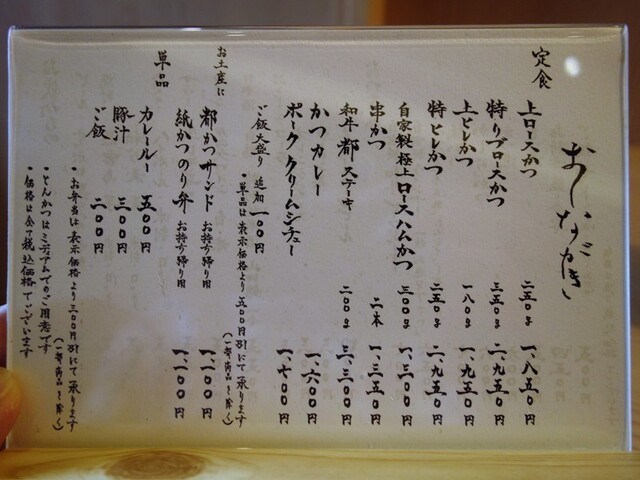 おしながき
定食
上ロースかつ 二五〇g 一、八五〇円
特リブロースかつ 三五〇g 二、九五〇円
上ヒレかつ 一八〇g 一、九五〇円
特ヒレかつ 二五〇g 二、九五〇円
自家製極上ロースハムかつ 三〇〇g 一、三〇〇円
串かつ 二本 一、三五〇円
和牛 都 ステーキ 二〇〇g 三、三〇〇円
かつカレー 一、六〇〇円
ポーククリームシチュー 一、七〇〇円
ご飯大盛り 追加 一〇〇円
・単品は表示価格より五〇〇円引にて承ります
(一部商品を除く)
お土産に
都かつサンド お持ち帰り用 一、二〇〇円
紙かつのり弁 お持ち帰り用 一、一〇〇円
単品
カレールー 五〇〇円
豚汁 三〇〇円
ご飯 二〇〇円
・お弁当は表示価格より三〇〇円引にて承ります
(一部商品を除く)
・とんかつはミディアムでのご用意です
・価格は全て税込価格でございます